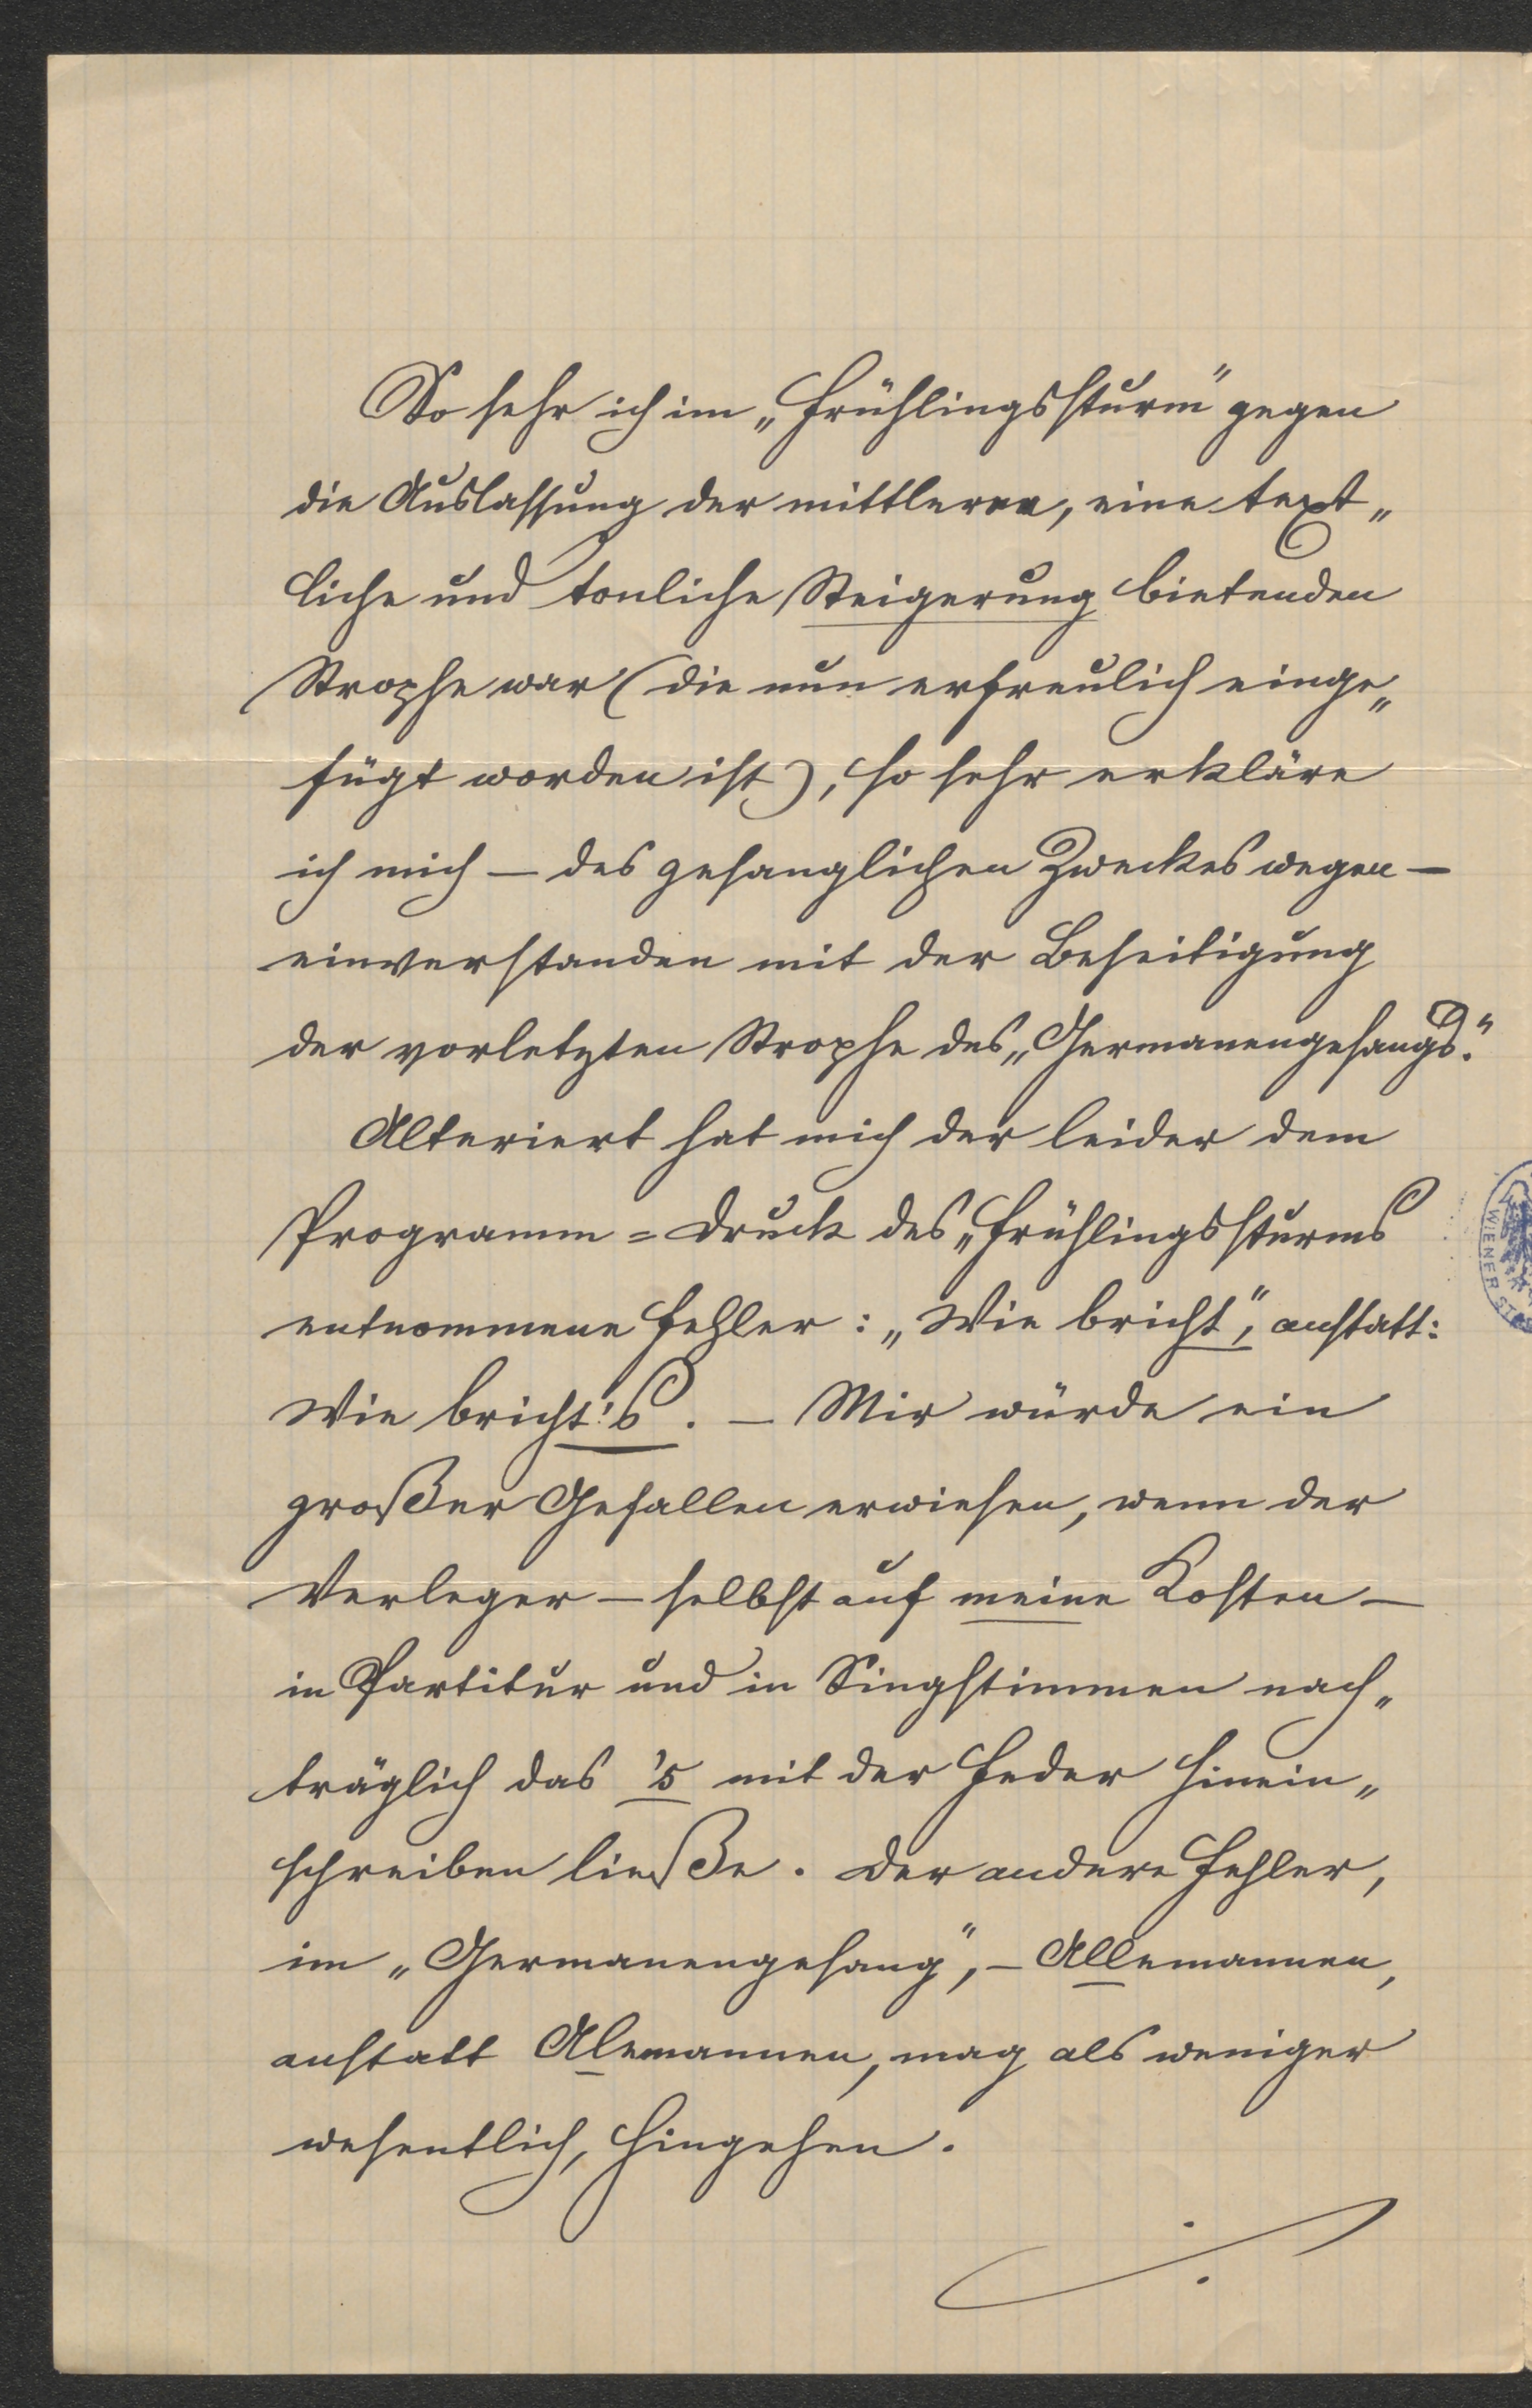 So sehr ich im „Frühlingssturm“ gegen
die Auslassung der mittleren, eine text„
liche und tonliche Steigerung bietenden
Strophe war (die nun erfreulich einge„
fügt worden ist), so sehr erkläre
ich mich – des gesanglichen Zweckes wegen –
einverstanden mit der Beseitigung
der vorletzten Strophe des „Germanengesangs“.
Alteriert hat mich der leider dem
Programm=Druck des „Frühlingssturms
entnommene Fehler: „Wie bricht“, anstatt:
Wie bricht's. – Mir würde ein
großer Gefallen erwiesen, wenn der
Verleger – selbst auf meine Kosten –
in Partitur und in Singstimmen nach„
träglich das 's mit der Feder hinein„
schreiben ließe. Der andere Fehler,
im „Germanengesang“, – Allemannen,
anstatt Alemannen, mag als weniger
wesentlich, hingehen.
WIENER